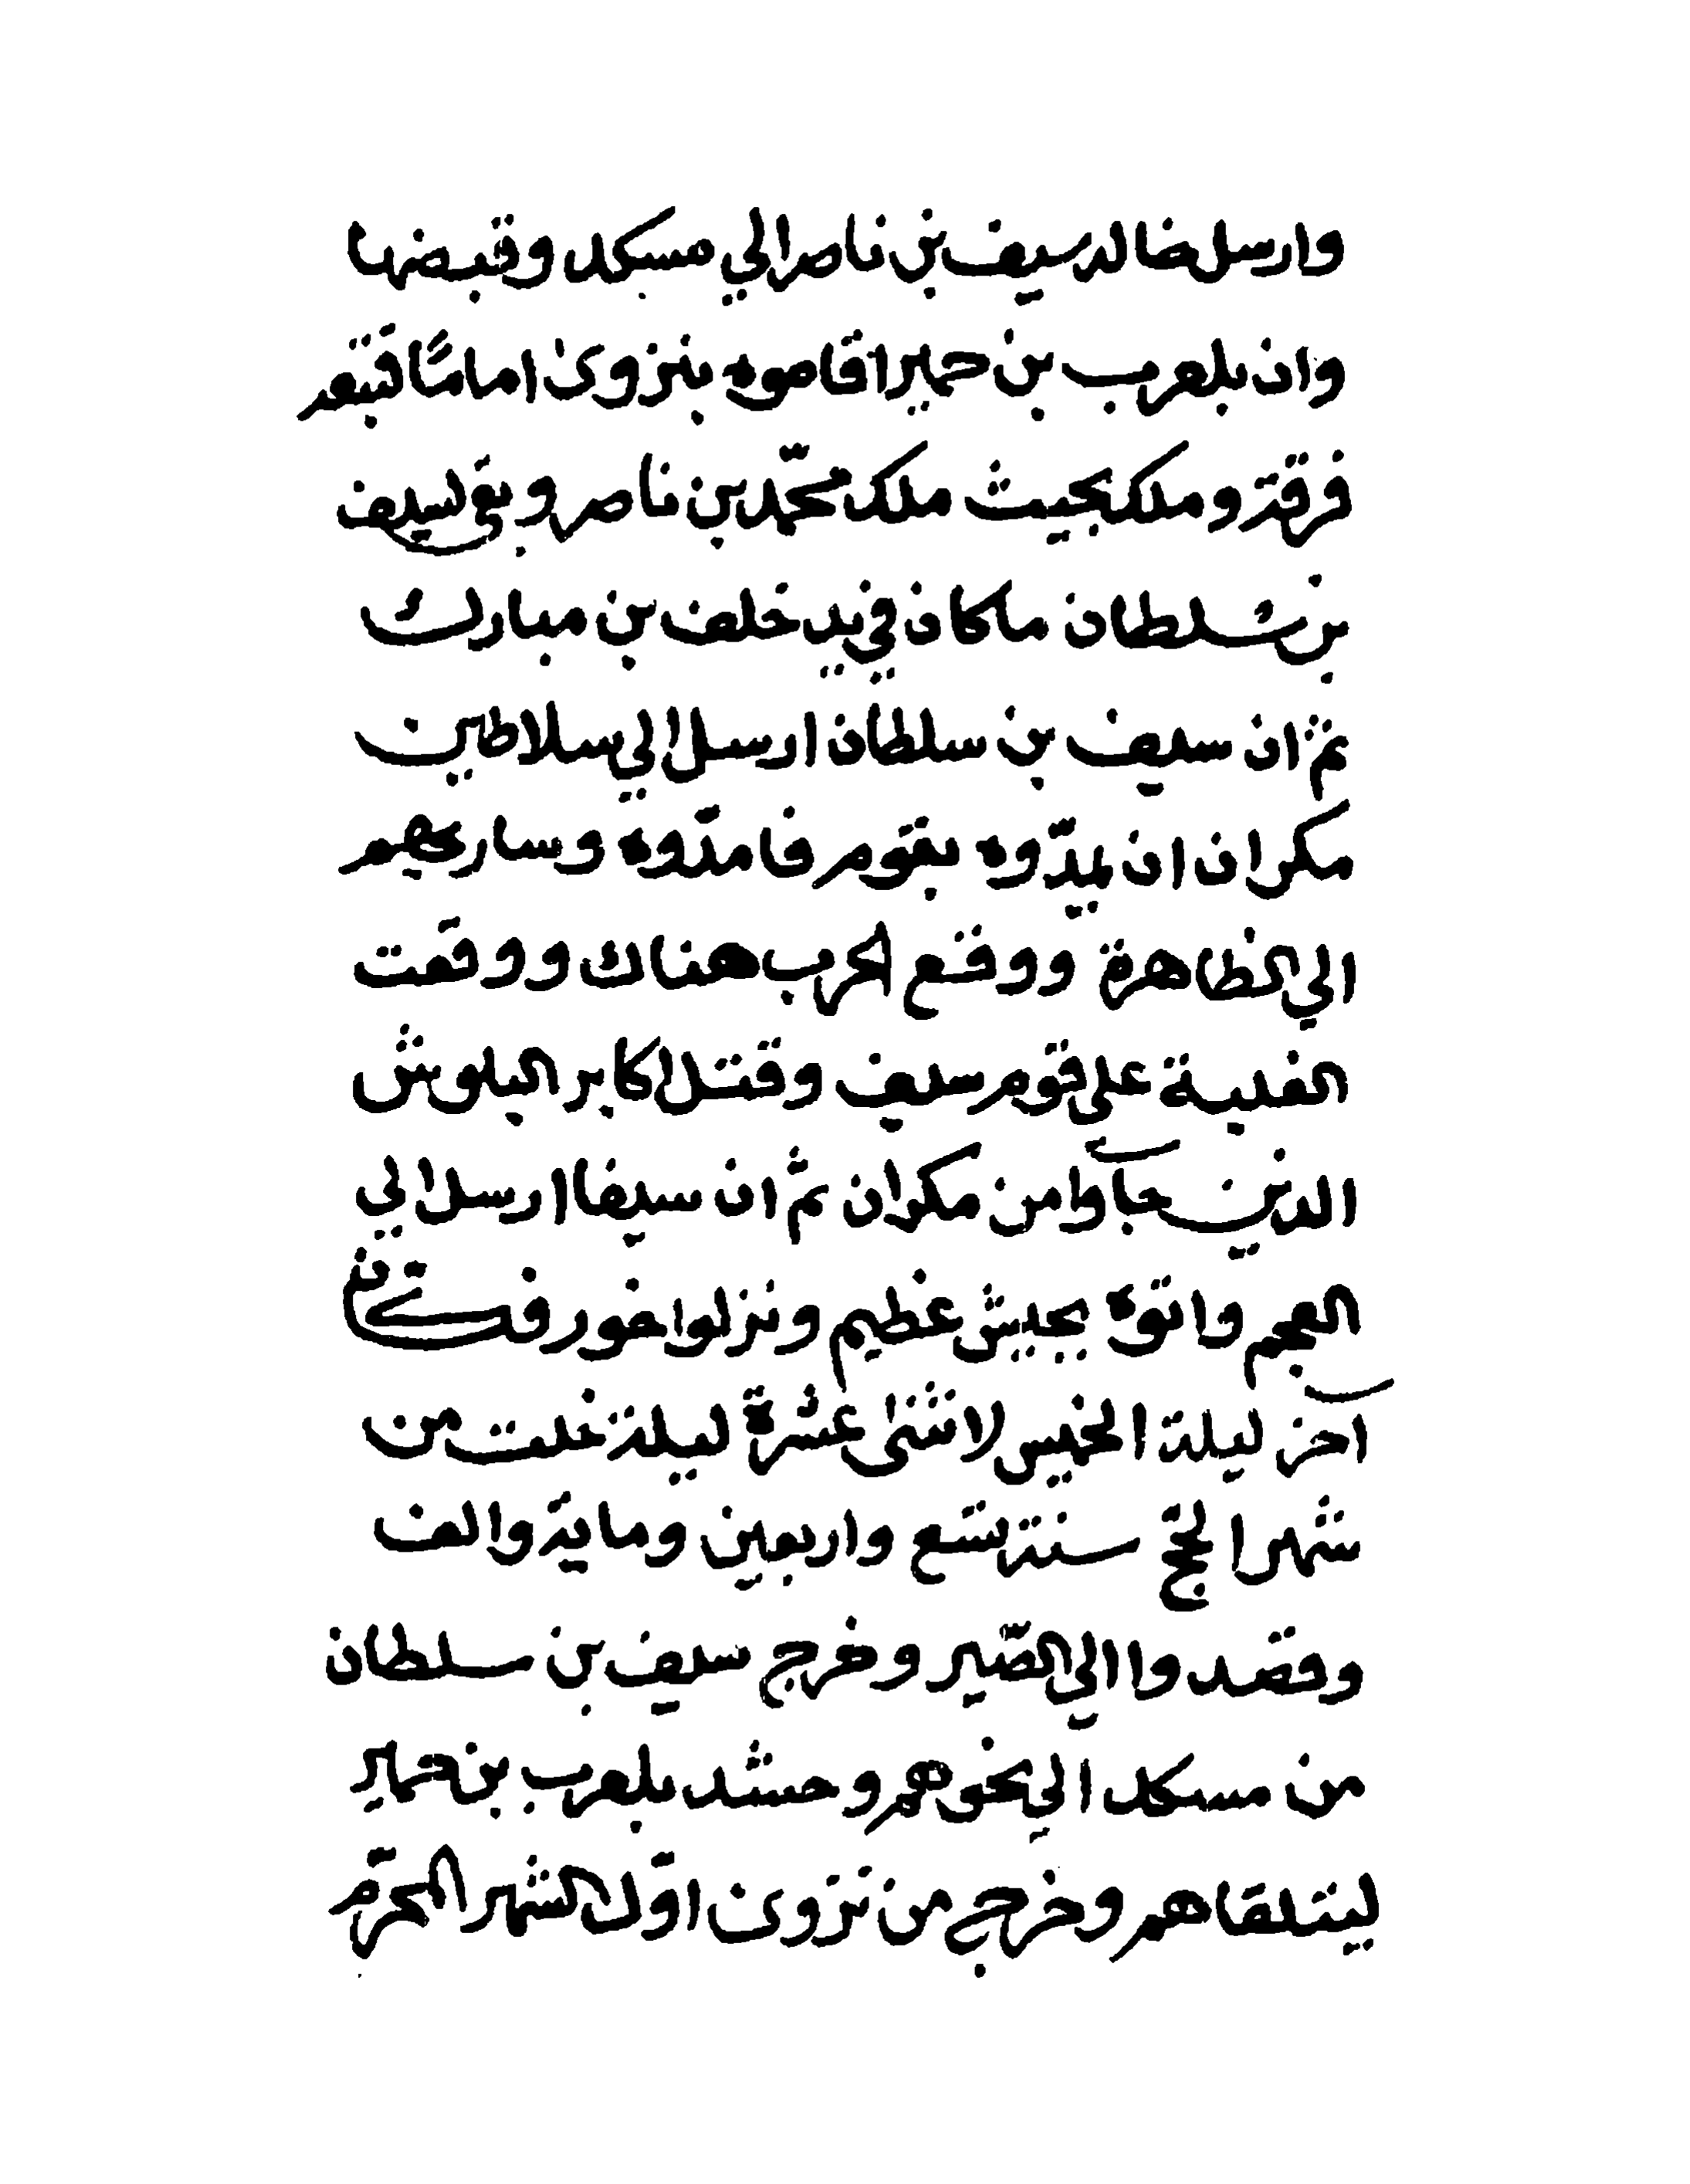 وارسل خاله سيف بن ناصر الي مسكد وقبضها
وان بلعرب بن حمير اقاموه بنزوى اماما فبقى
فرقة وملك بحيث ملك محمّد بن ناصر وبقي لسيف
بن سلطان ما كان في يد خلف بن مبارك
ثم ان سيف بن سلطان ارسل الي سلاطين
مكران ان يمدّوه بقوم فامدّوه وساربهم
الي الظاهرة ووقع الحرب هناك ووقعت
الغلبة على قوم سيف وقتل اكابر البلوش
الذين جآوا من مكران ثم ان سيفا ارسل الي
العجم واتوه بجيش عظيم ونزلوا خور فكان
آخر ليلة الخميس لاثنتى عشرة ليلة خلت من
شهر الحج سنة تسع واربعين وماية والف
وقصدوا الي الصّير وخرج سيف بن سلطان
من مسكد الي نحوهم وحشد بلعرب بن حمير
ليتلقاهم وخرج من نزوى اوّل الشهر المحرّم